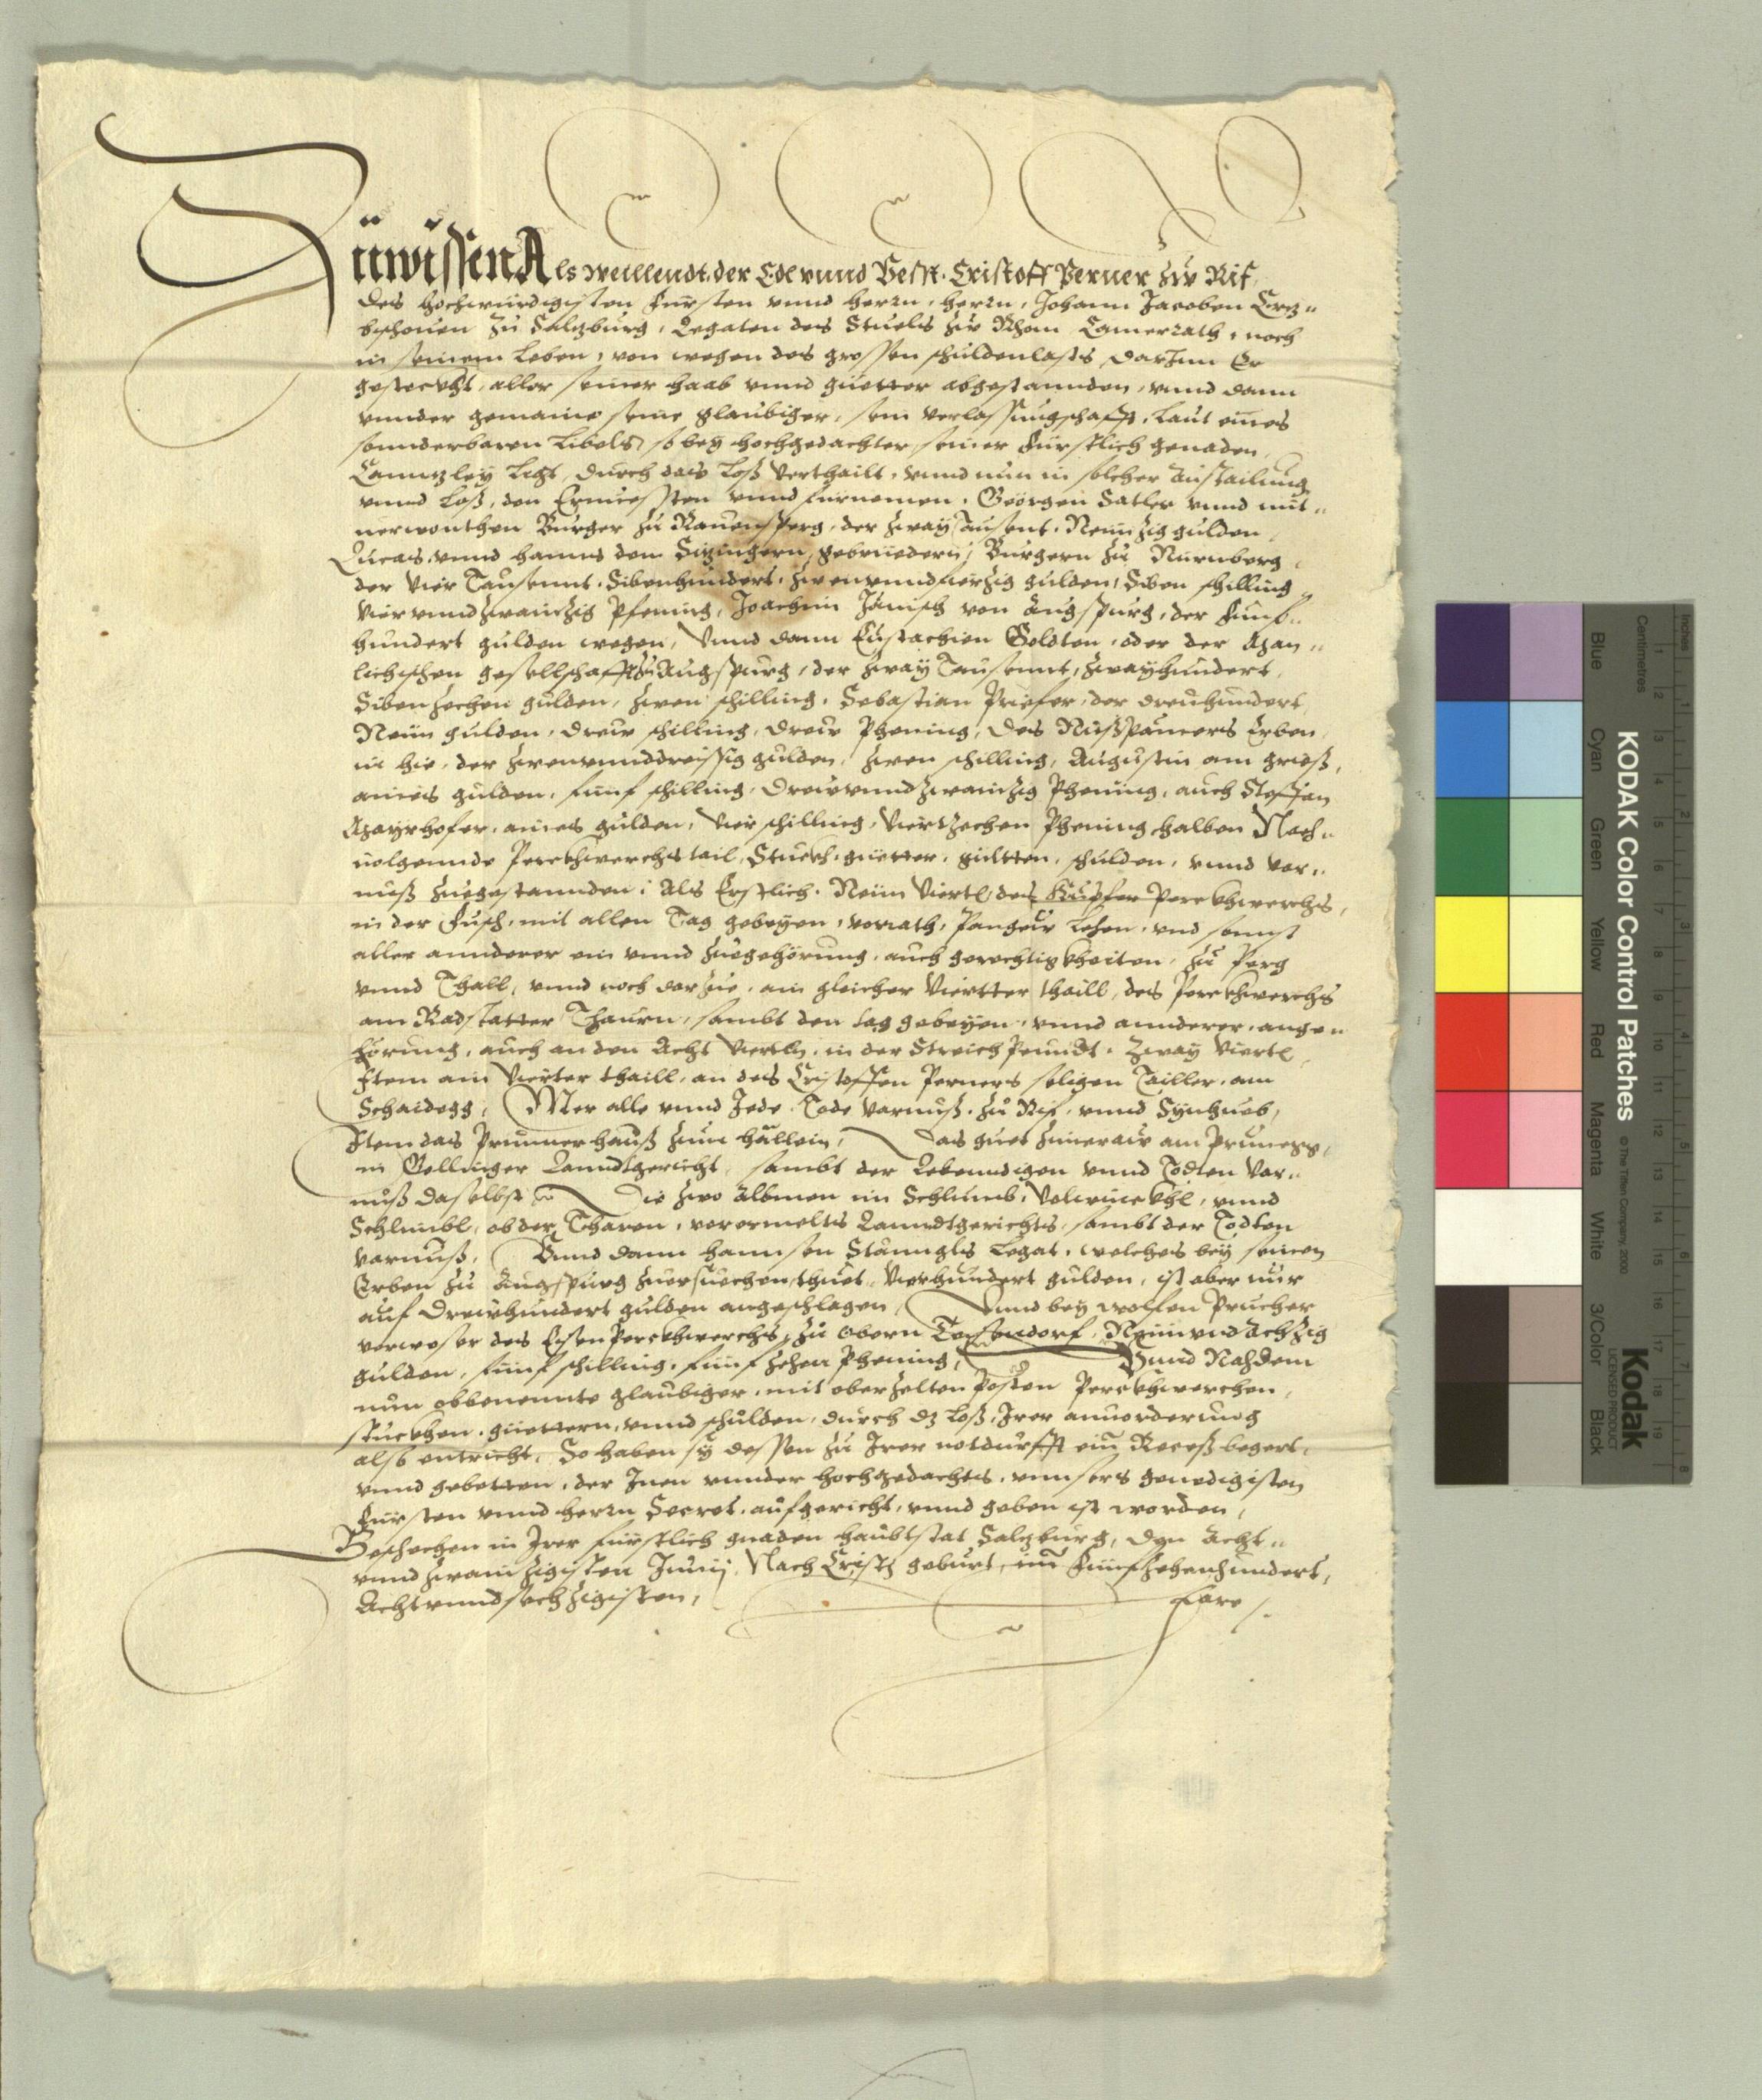 Zuwissen Als weillendt der Edl vnnd Vesst Cristoff Perner zw Rif,
des hochwirdigisten Fürsten vnnd herrn, herrn, Johann Jacoben Ertz„
bischouen zu Saltzburg, Legaten des Stuels zw Rhom Camerrath, noch
in seinem Leben, von wegen des grossen schuldenlasts darInn Er
gesteckht, aller seiner haab vnnd güetter abgestannden, vnnd dann
vnnder gemaine seine glaubiger, sein verlassungschafft, Laut eines
sonnderbaren Libels, so bey hochgedachter seiner Fürstlich genaden,
Canntzley ligt, durch das Loß verthailt, vnnd nun in solcher austailung
vnnd Loß, den Ernuessten vnnd Furnemen, Georgen Satler vnnd mit„
uerwonthen Burger zu Rauenspurg, der zway Tausent Neünzig gulden,
Lucas vnnd hanns den Sitzingern, gebruedern, Burgern zu Nurnberg,
der Vier Tausennt Sibenhundert zwenunndvierzig gulden, Siben schilling
Viervnndzwainzig Pfening, Joachim Jänisch von Augspurg, der Funf„
hundert gulden wegen, Vnnd dann Eustachien Goldten, oder der Man„
lichischen gesellschafft zu Augspurg, der zway Tausennt, zwayhundert,
Sibenzechen gulden, zwen schilling, Sebastian Priefer, der dreuhundert,
Neün gulden, drew schilling, drew Phening, des Nußpaumers Erben,
in hie, der zwenvnnddreissig gulden, zwen schilling, Augustin am grieß,
aines gulden, funf schilling, drewvnndzwainzig Phening, auch Steffan
Mayrhofer, aines gulden, Vier schilling, Viertzechen Phening halben Nach„
uolgennde Perckhwerchstail, Stuckh, güetter, gültten, schulden, vnnd var„
nuß zuegestannden; Als Erstlich, Neün Viertl, des Kupfer Perckhwerchs,
in der Fusch, mit allen Tag gebeyen, vorrath, Pangeir Lehen, vnd sonnst
aller annderer ein vnnd zuegehörung, auch gerechtigkheiten, zu Perg
vnnd Thall, vnnd noch darzue, ain gleicher Viertter thaill, des Perckhwerchs
am Radstatter Thaurn, sambt den tag gebeyen, vnnd annderer, ange„
hörung, auch an den Acht Viertln, in der Streich Peundt, zway Viertl,
Item ain Vierter thaill, an des Cristoffen Perners seligen Tailler, am
Schaidegg, Mer alle vnnd Jede Tode varnuß, zu Rif, vnnd Synhueb,
Item das Prunner hauß zum hällein, Das guet Zimeraw am Prunegg,
in Gollinger Lanndtgericht, sambt der Lebenndigen vnnd Todten Var„
nuß daselbst, Die zwo albmen im Schlumb, Velwinckhl, vnnd
Schlumbl, ob der Tharen, vorermelts Lanndtgerichts, sambt der Todten
varnuß, Vnnd dann hannsen Stänngls Legat, welches bey seinen
Erben zu Augspurg zuersuechen, thuet Vierhundert gulden, ist aber nur
auf drewhundert gulden angeschlagen, Vnnd bey wolfen Prucher
verweser des Eysen Perckhwerchs, zu obern Teysendorf, Neünvnd Achzig
gulden, funf schilling, funfzehen Phening, Vnnd Nachdem
nun obbenennte glaubiger, mit oberzelten Posten Perckhwerchen,
stuckhen, güettern, vnnd schulden, durch dz Loß, Irer anuorderung
also entricht, So haben sy dessen zu Irer notdurfft ein Receß begert,
vnnd gebetten, der Inen vnnder hochgedachts, vnnsers genedigisten
Fürsten vnnd herrn Secret, aufgericht, vnnd geben ist worden,
Beschechen in Irer Fürstlich gnaden haubtstat Saltzburg, den Acht„
vnnd zwainzigisten Junij, Nach Cristj geburt, im Funfzehenhundert,
Achtvnndsechzigisten,
KODAK Color Control Patches © The Tiffen Company, 2000
Kodak
LICENSED PRODUCT
Inches
Centimetres
Blue Cyan Green Yellow Red Magenta White 3/Color Black